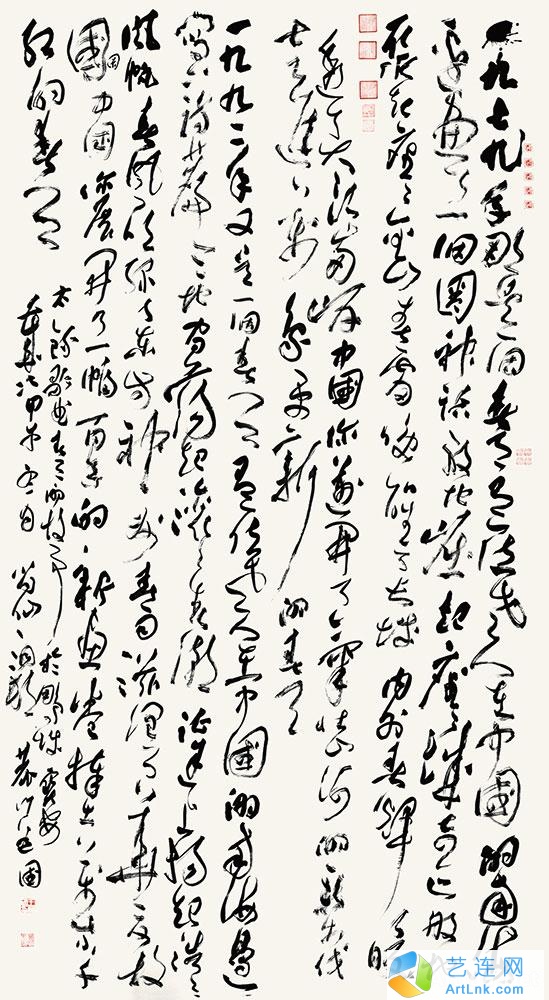 一九七九年那是一个春天有一位老人在中国的南海
边画了一个圈神话般地崛起座座城奇迹般
聚起座座金山春雷唤醒了长城内外春辉暖
透了大江两岸中国你迈开了气壮山河的新步伐
走进万象更新的春天
一九九二年又是一个春天有一位老人在中国的南海边
写下诗篇天地间荡起滚滚春潮征途上扬起浩浩
风帆春风吹绿了东方神州春雨滋润了华夏故
园中国你展开了一幅百年的新画卷捧出万紫千
红的春天
艺连网
ArtLnk.com